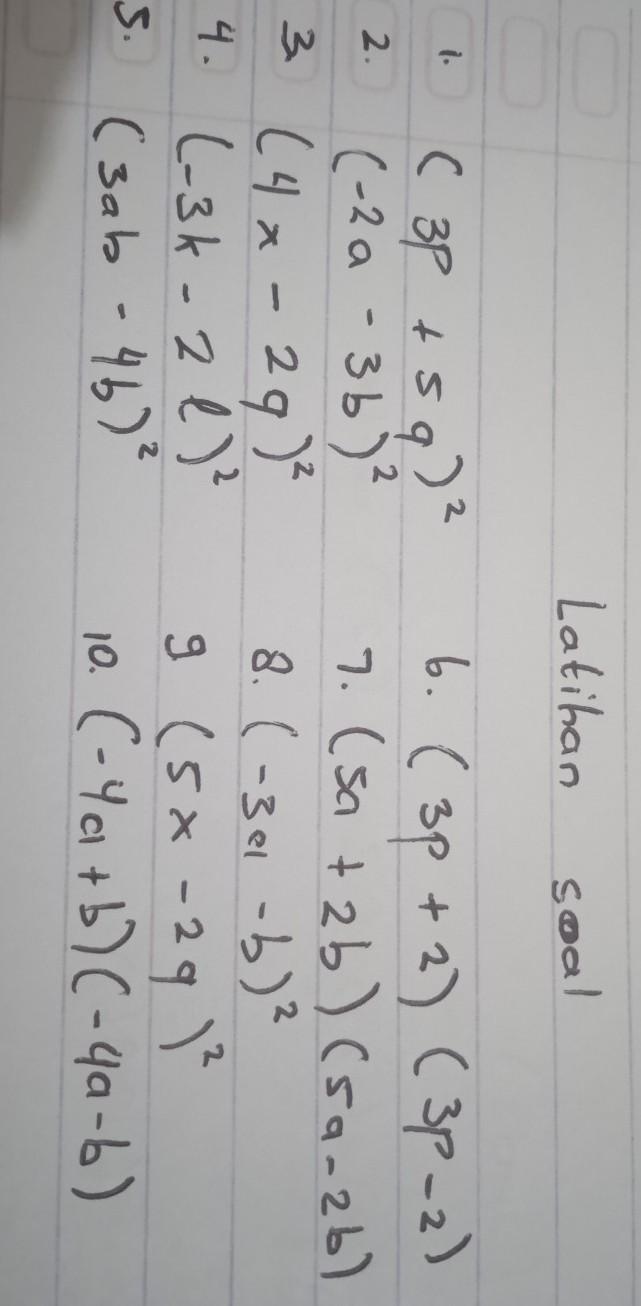 Latihan soal
1. (3p + 5q)² 6. (3p + 2) (3p - 2)
2. (-2a - 3b)² 7. (5a + 2b) (5a - 2b)
3 (4x - 2q)² 8. (-3a - b)²
4. (-3k - 2ℓ)² 9 (5x - 2q)²
5. (3ab - 4b)² 10. (-4a + b) (-4a - b)